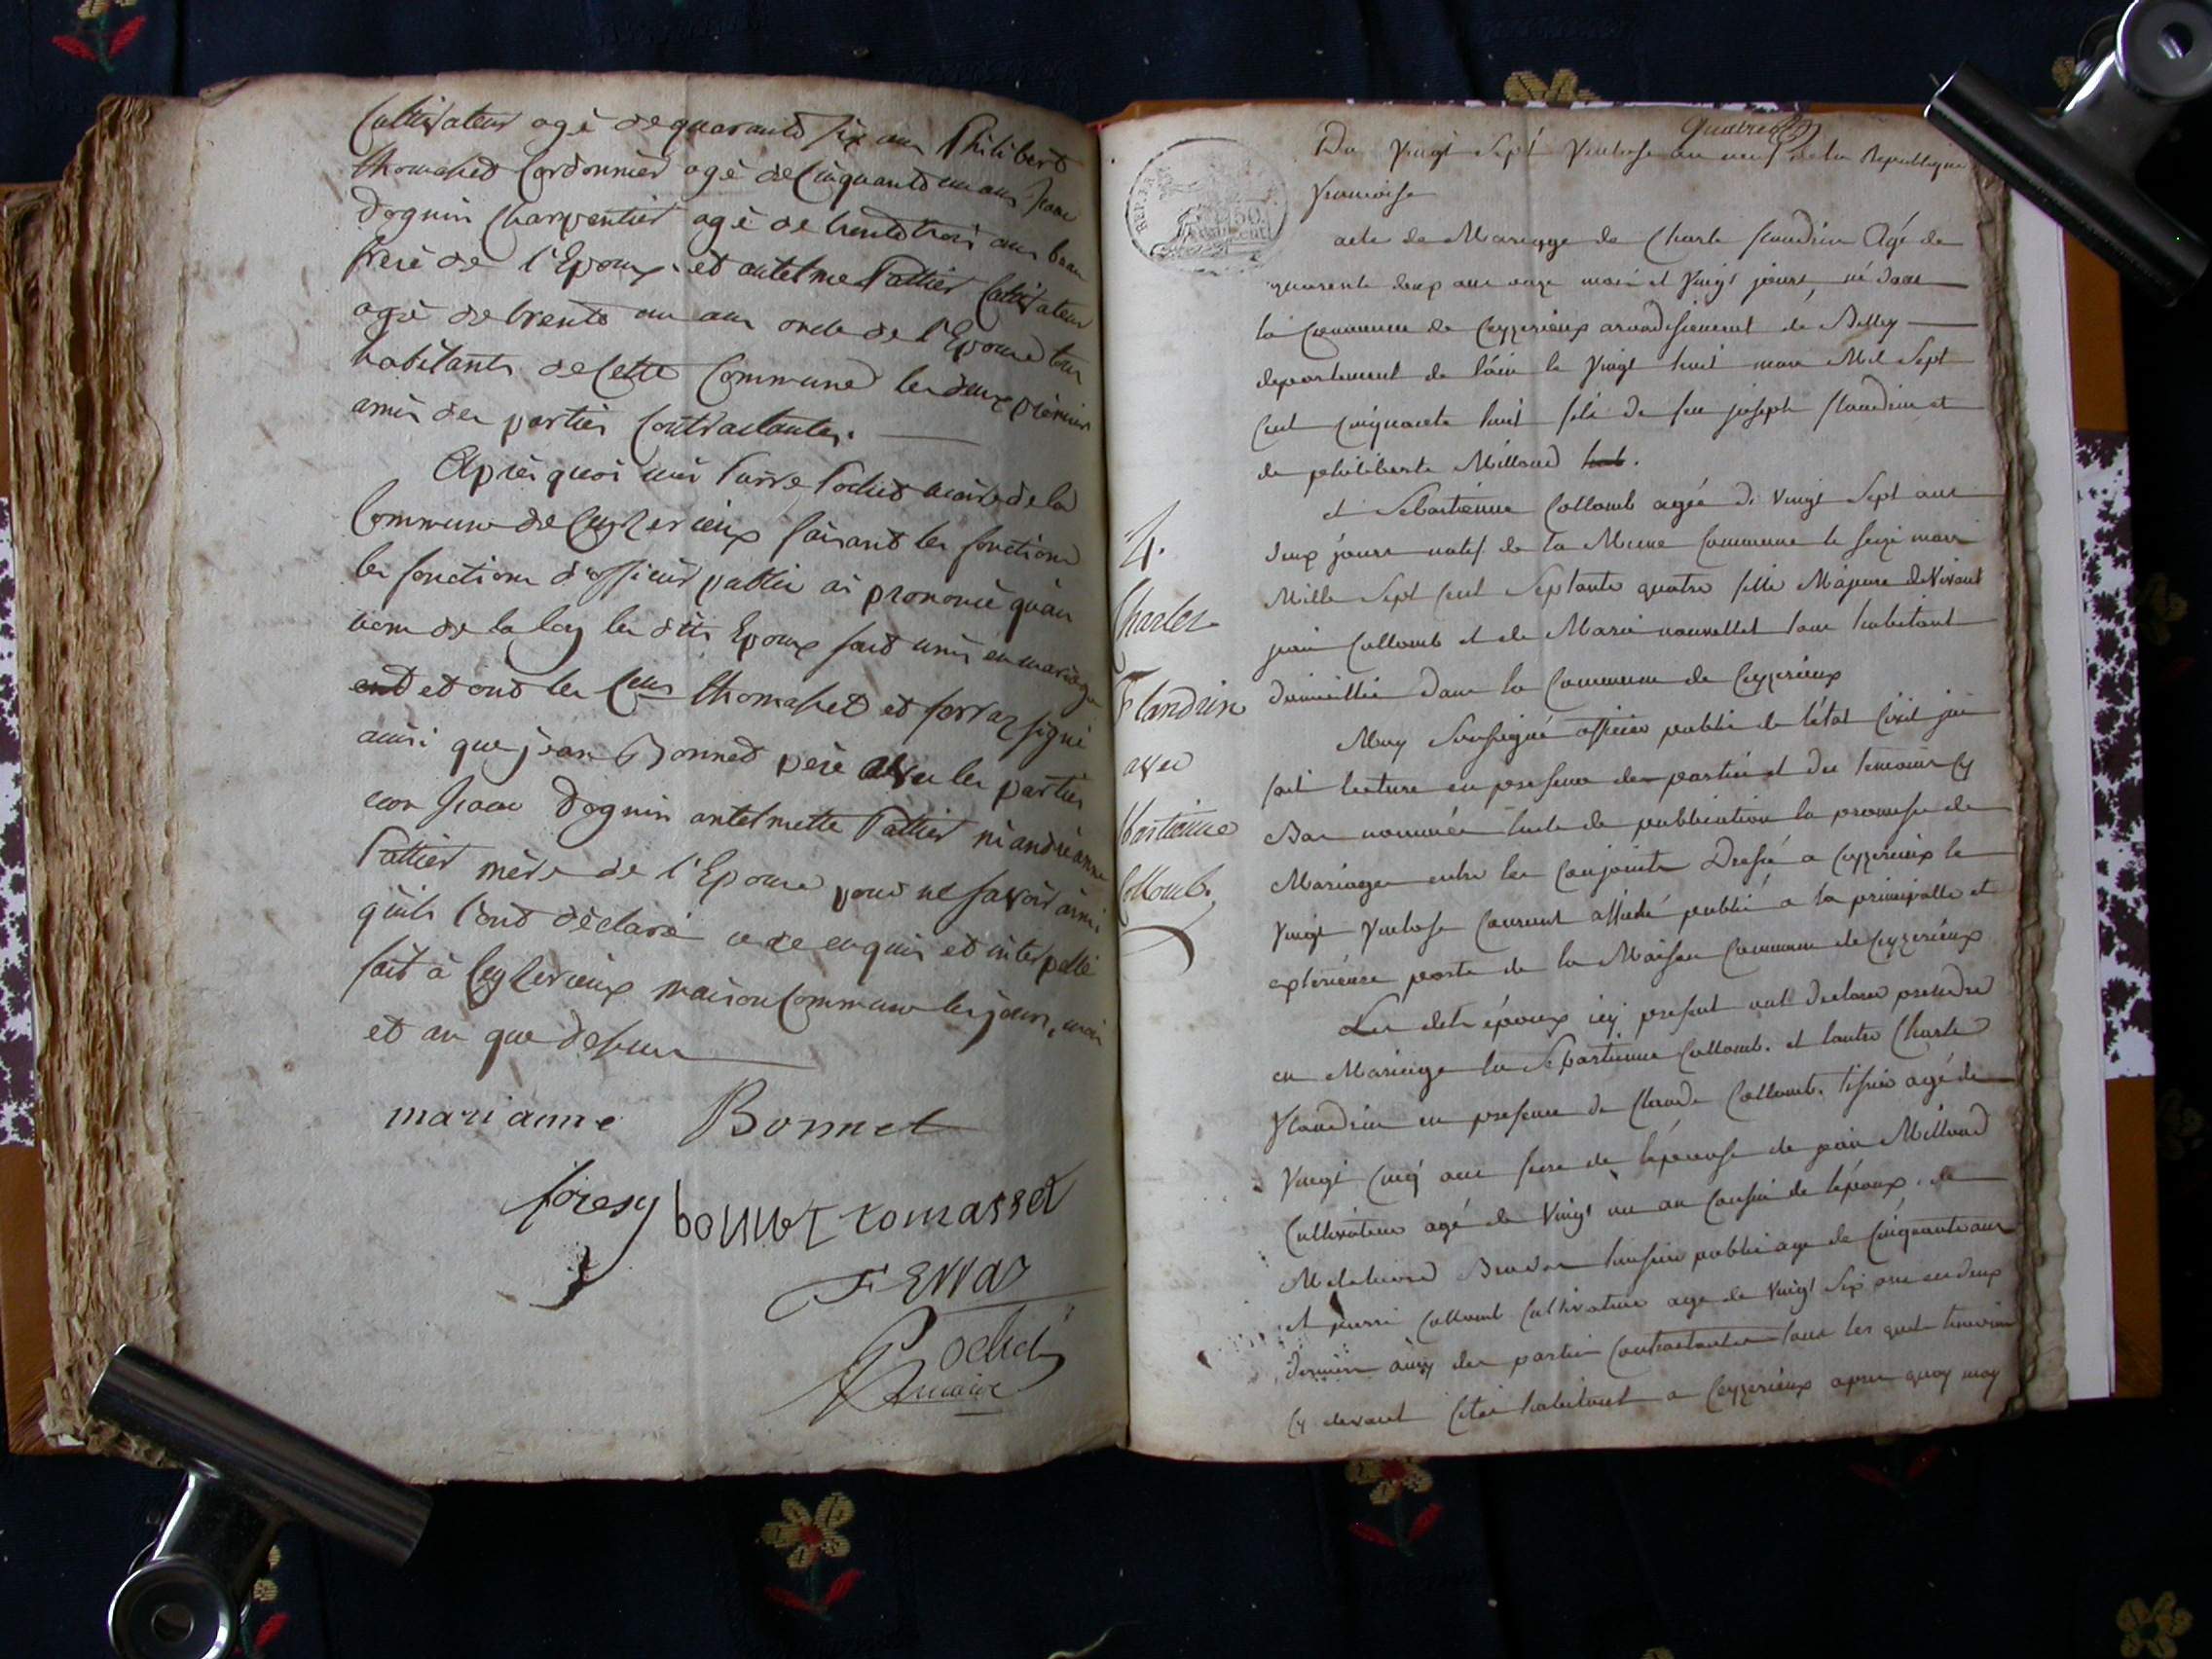 Cultivateur agé de quarante six ans Philibert
thomasset Cordonnier agé de Cinquante un ans Jean
Doguin Charpentier agé de trente trois ans beau
frere de l'Epoux et antelme Pattier Cultivateur
agé de trente un ans oncle de l'Epouse tous
habitants de Cette Commune les deux premiers
amis des parties Contractantes.
Aprés quoi moi Pierre Pochet maire de la
Commune de Ceyzerieux faisant les fonctions
les fonctions d'officier public ai prononcé qu'au
nom de la loy les dits Epoux sont unis en mariage
ent et ont les Cens thomasset et ferraz signé
ainsi que jean Bonnet père avec les parties
non Jean Doguin antelmette Pattier ni andréanne
Pattier mère de l'Epouse pour ne savoir ainsi
quils l'ont déclaré de ce enquis et interpellé
fait à Ceyzerieux maison Commune les jours, mois
et an que dessus
marianne Bonnet
foresy bonnet tomasset
Ferraz
Pochet
maire
quatre
Du Vingt Sept Ventose an neuf de la Republique
francaise
acte de Mariage de Charle flandrin Agé de
quarente deux ans onze mois et Vingt jours, né dans
la Commune de Ceyzerieux arondissement de Belley
departement de l'ain le Vingt huit mars Mil Sept
Cent Cinquante huit fils de feu joseph flandrin et
de philiberte Milloud
et Sebastienne Collomb agée de Vingt Sept ans
deux jours natif de la Meme Commune le seize mars
Mille Sept Cent Septante quatre fille Majeure de Vivant
jean Collomb et de Marie nouvellet tous habitant
domicillié dans la Commune de Ceyzerieux
Moy Soussigné officier public de l'état Civil jai
fait lecture en presence des parties et des temoins Cy
Bas nommés lacte de publication la promesse de
Mariage entre les Conjoints Dressé a Ceyzerieux le
Vingt Ventose Courant affiché publié a la principalle et
exterieure porte de la Maison Commune de Ceyzerieux
Les dits époux icy present ont declaré prendre
en Mariage la Sebastienne Collomb. et lautre Charle
flandrin en presence de Claude Collomb. tissier agé de
Vingt Cinq ans frere de l'épouse de jean Milloud
Cultivateur agé de Vingt un an Cousin de l'époux. de
public age de Cinquante ans
et pierre Collomb Cultivateur age de Vingt Six ans
dernier amy des parties Contractantes tous les quels temoins
Cy devant Cités habitant a Ceyzerieux apres quoy moy
4.
Charles
Flandrin
avec
Sebastienne
Collomb.